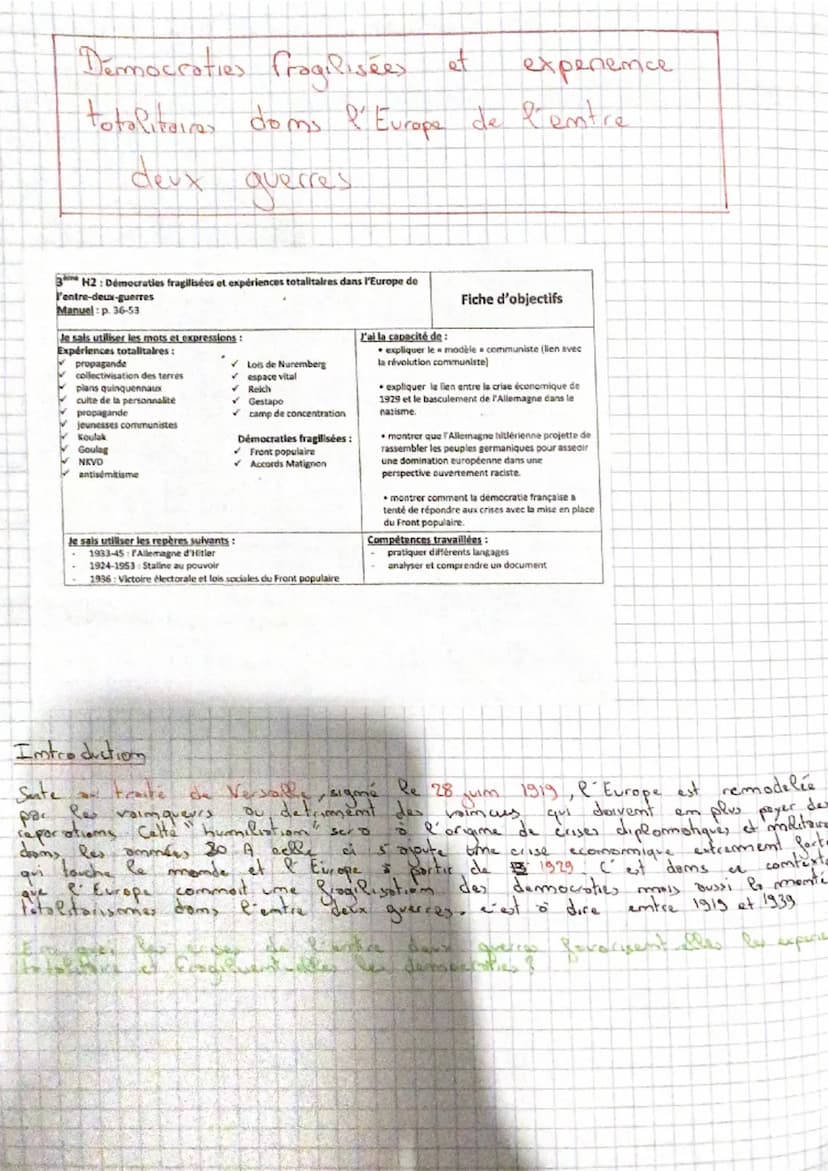 Démocraties fragilisées et experience
totalitaires dans l'Europe de l'entre
deux guerres
3ème H2 : Démocraties fragilisées et expériences totalitaires dans l'Europe de
l'entre-deux-guerres
Manuel : p. 36-53
Fiche d'objectifs
Je sais utiliser les mots et expressions :
Expériences totalitaires :
✓ propagande
✓ collectivisation des terres
✓ plans quinquennaux
✓ culte de la personnalité
✓ propagande
✓ jeunesses communistes
✓ Koulak
✓ Goulag
✓ NKVD
✓ antisémitisme
✓ Lois de Nuremberg
✓ espace vital
✓ Reich
✓ Gestapo
✓ camp de concentration
Démocraties fragilisées :
✓ Front populaire
✓ Accords Matignon
J'ai la capacité de :
• expliquer le « modèle » communiste (lien avec
la révolution communiste)
• expliquer le lien entre la crise économique de
1929 et le basculement de l'Allemagne dans le
nazisme.
• montrer que l'Allemagne hitlérienne projette de
rassembler les peuples germaniques pour asseoir
une domination européenne dans une
perspective ouvertement raciste.
• montrer comment la démocratie française a
tenté de répondre aux crises avec la mise en place
du Front populaire.
Je sais utiliser les repères suivants :
- 1933-45 : l'Allemagne d'Hitler
- 1924-1953 : Staline au pouvoir
- 1936 : Victoire électorale et lois sociales du Front populaire
Compétences travaillées :
- pratiquer différents langages
- analyser et comprendre un document
Introduction
Suite au traité de Versaille, signé le 28 juin 1919, l'Europe est remodelée
par les vainqueurs au detriment des vaincus, qui doivent en plus payer des
reparations. Cette "humiliation" sera à l'origine de crises diplomatiques et militaire
dans les années 30 A celle ci s'ajoute une crise economique extrement forte
qui touche le monde et l'Europe à partir de 1929. C'est dans ce contexte
que l'Europe connait une fragilisation des democraties mais aussi la monté
totalitarismes dans l'entre deux guerres. c'est à dire entre 1919 et 1939
En quoi les crises de l'entre deux guerres favorisent elles les experience
totalitaire et fragilisent-elles les democraties ?